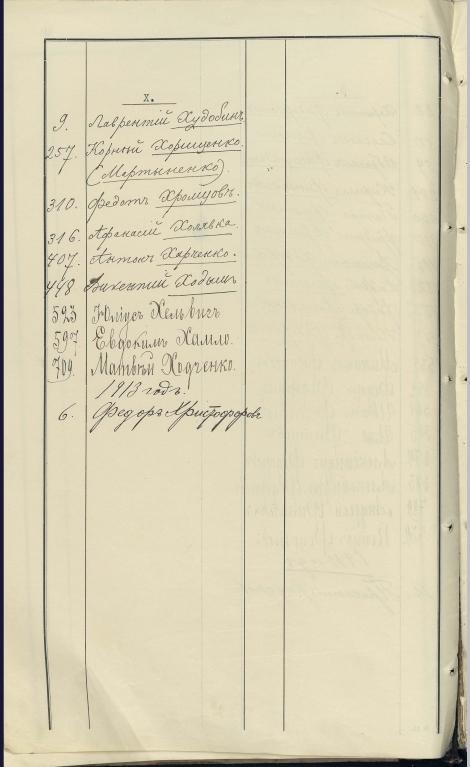 Х.
9. Лаврентій Худобинъ
257. Корный Хорищенко.
(Мартыненко).
310. Федотъ Хромцовъ.
316. Афанасій Холявка.
407. Антонъ Харченко.
448 Викентий Ходымъ
523 Юліусъ Хельвигъ
597 Евдокимъ Хамло.
709. Матвѣй Ходченко.
1913 годъ.
6. Федоръ Христофоровъ